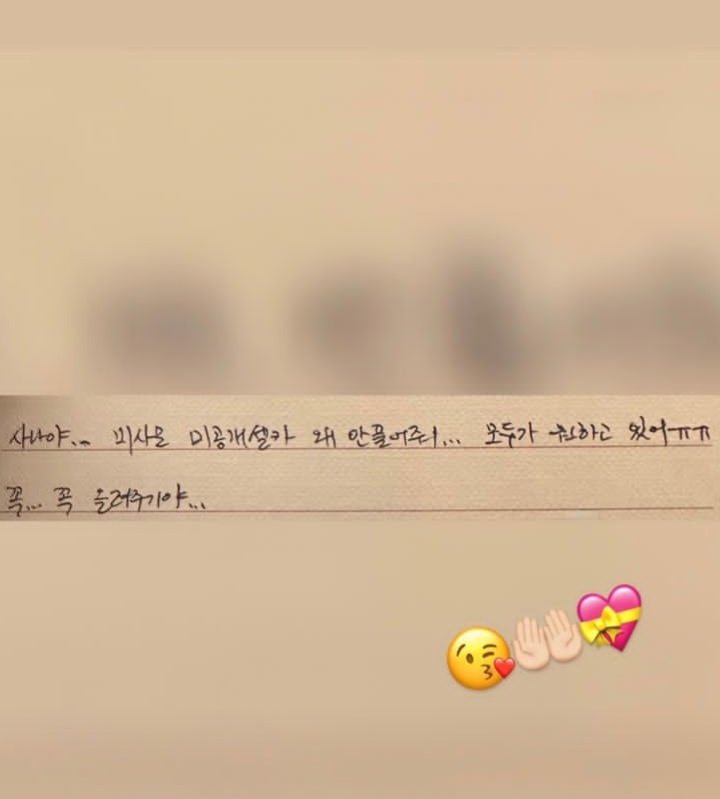 사나야... 미공개셀카 왜 안풀어줘... 모두가 원하고 있어ㅠㅠ
꼭... 꼭 올려주기야...